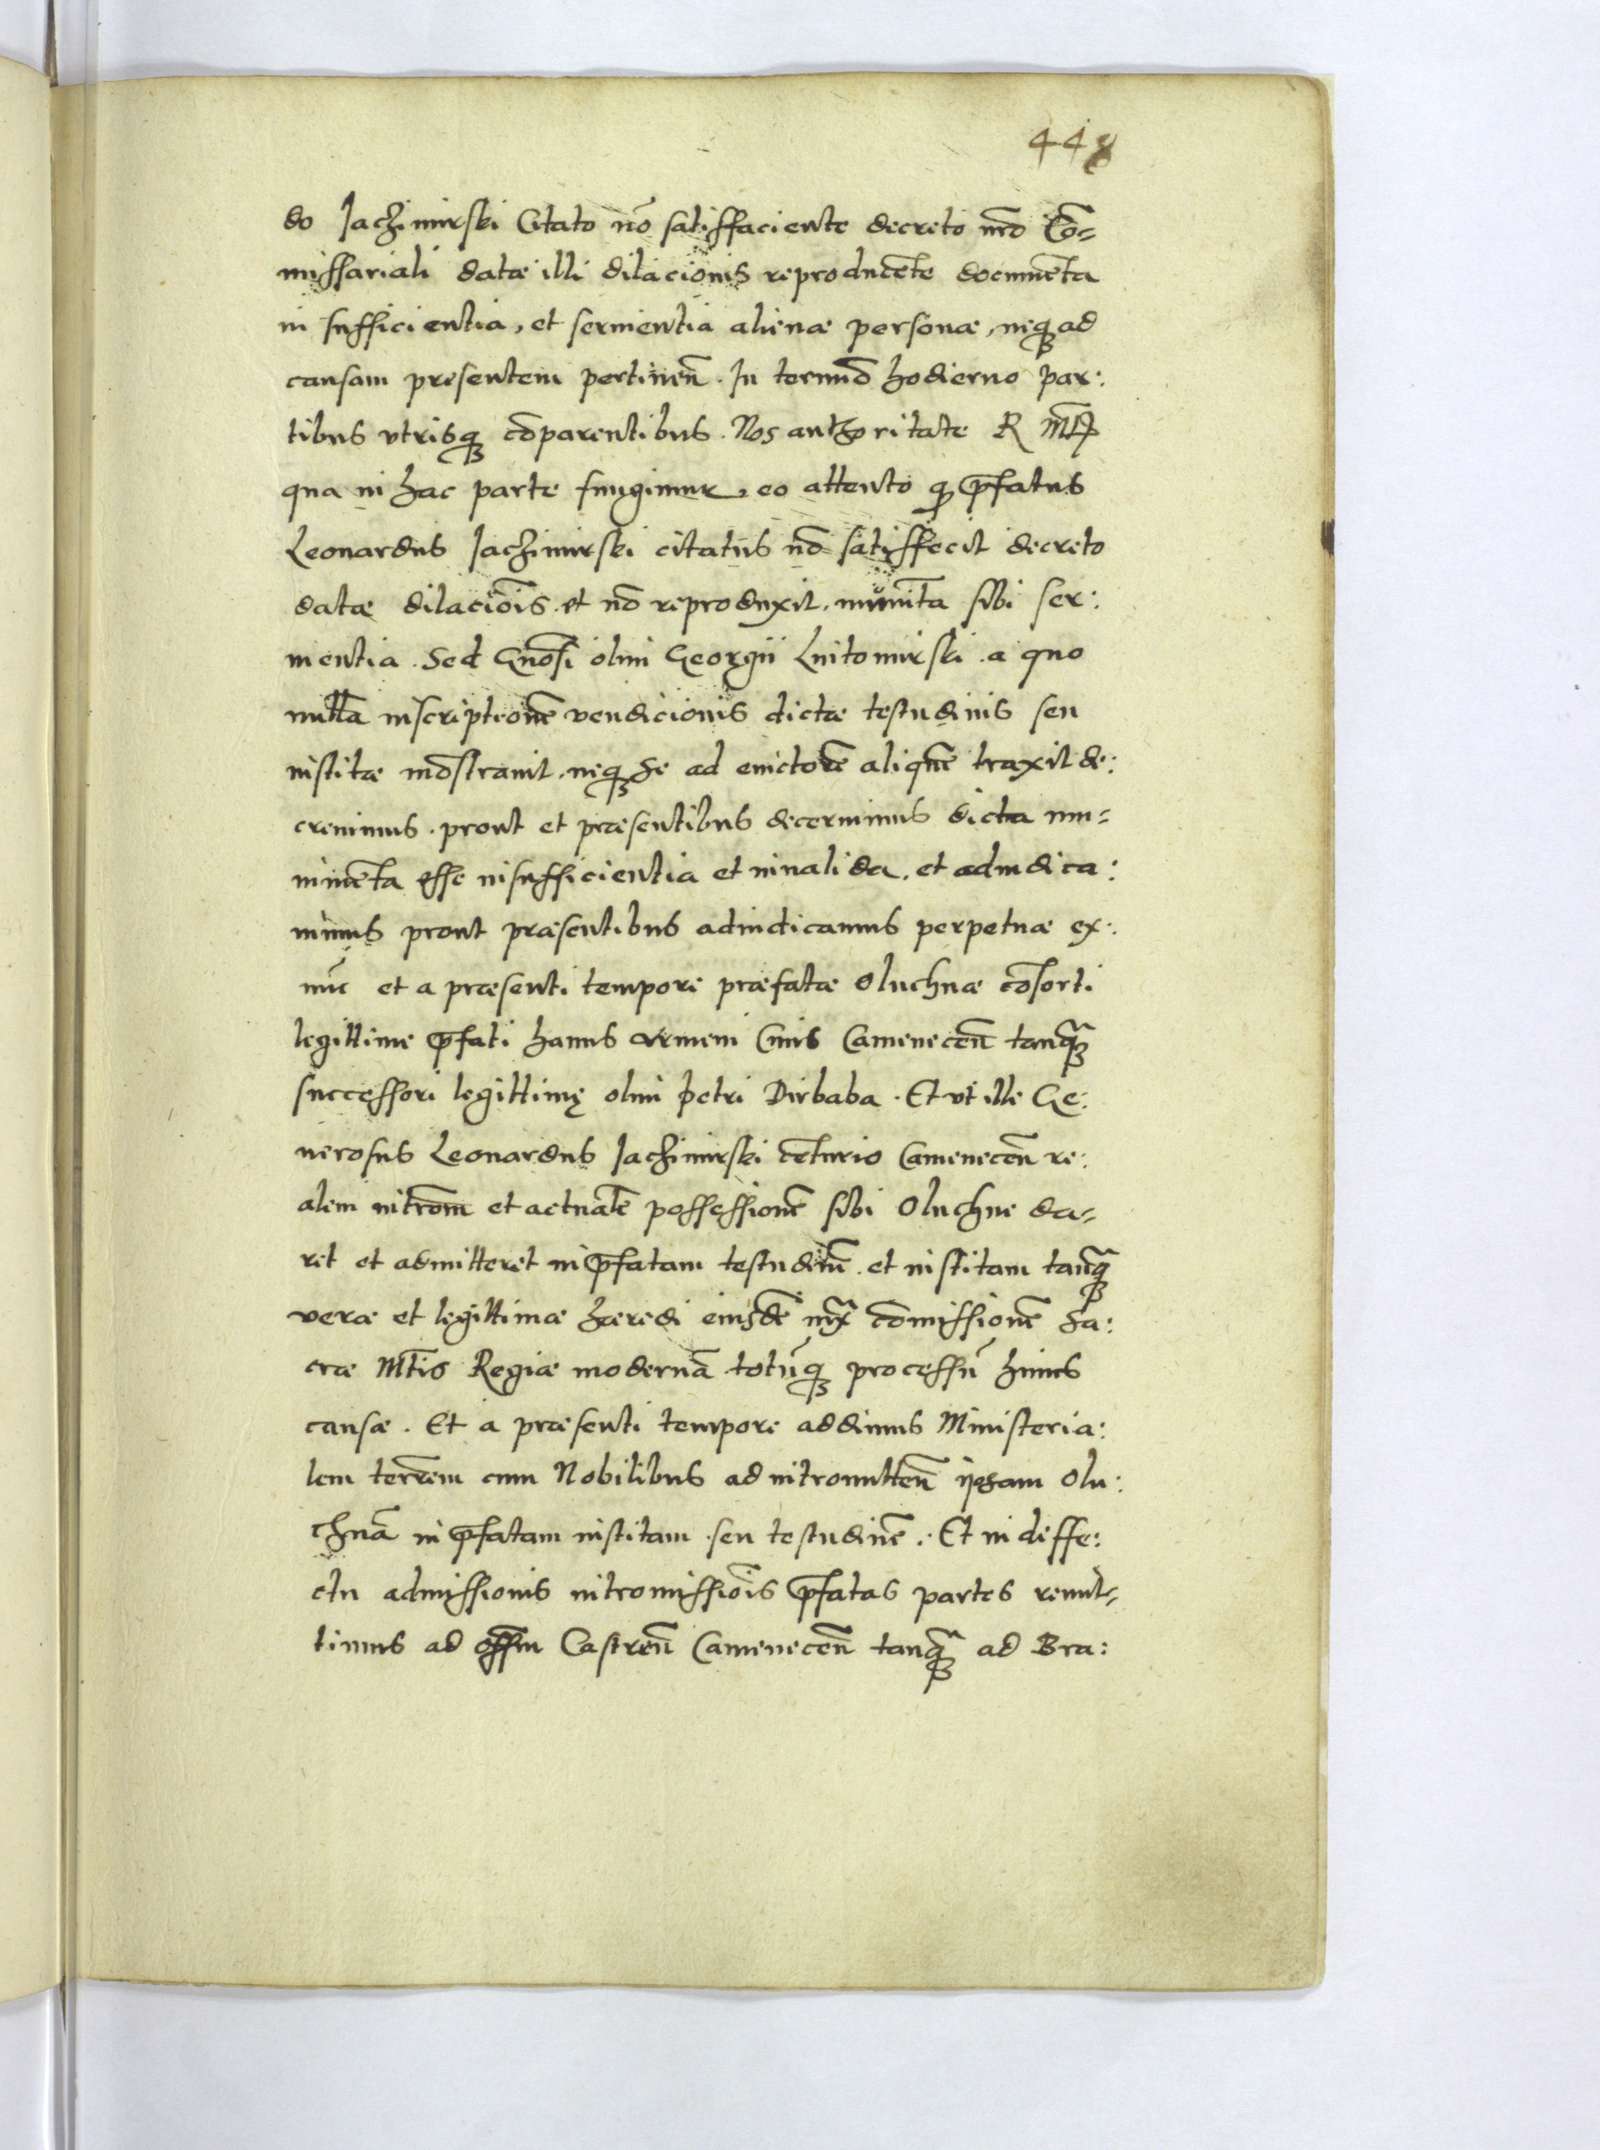 448
do Jachimirski Citato nō satisfaciente decreto nr̄o Cō=
missariali datæ illi dilacionis reproducēte documēta
in sufficientia, et servientia alienæ personæ, neqꝫ ad
causam presentem pertineñ. In termīo hodierno par:
tibus vtrisqꝫ cōparentibus. Nos authoritate R Mtis
qua in hac parte fungimur, eo attento qꝫ p̄fatus
Leonardus Jachimirski citatus nō satisfecit decreto
datæ dilaciōis et nō reproduxit, munimēta sibi ser:
vientia. Sed Gn̄osi olim Georgii Luitomirski a quo
nullā inscriptionē vendicionis dictæ testudinis seu
institæ mōstravit, neqꝫ se ad evictorē aliquē traxit de:
crevimus. prout et præsentibus decernimus dicta mu=
nimēta esse insufficientia et invalida, et adiudica:
vimus prout præsentibus adiudicamus perpetuæ ex:
nūc et a præsenti tempore præfatæ Oluchnæ cōsorti
legittime p̄fati hanus Armeni Civis Cameneceñ tanqꝫ
successori legittimę olim petri Dirbaba. Et vt ille Ge:
nerosus Leonardus Jachimirski cēturio Cameneceñ re:
alem intrōm et actualē possessionē sibi Oluchne da=
ret et admitteret in p̄fatam testudinē et institam tanqꝫ
veræ et legittimæ hæredi eiusdē iux̄ cōmissionē Sa:
cræ Mtis Regiæ modernā totūqꝫ processū huius
causæ. Et a præsenti tempore addimus Ministeria:
lem terrēm cum Nobilibus ad intromitteñ ipsam Olu:
chnā in p̄fatam institam seu testudinē. Et in deffe:
ctu admissionis intromissiōis p̄fatas partes remit=
timus ad offm̄ Castreñ Cameneceñ tanqꝫ ad Bra: